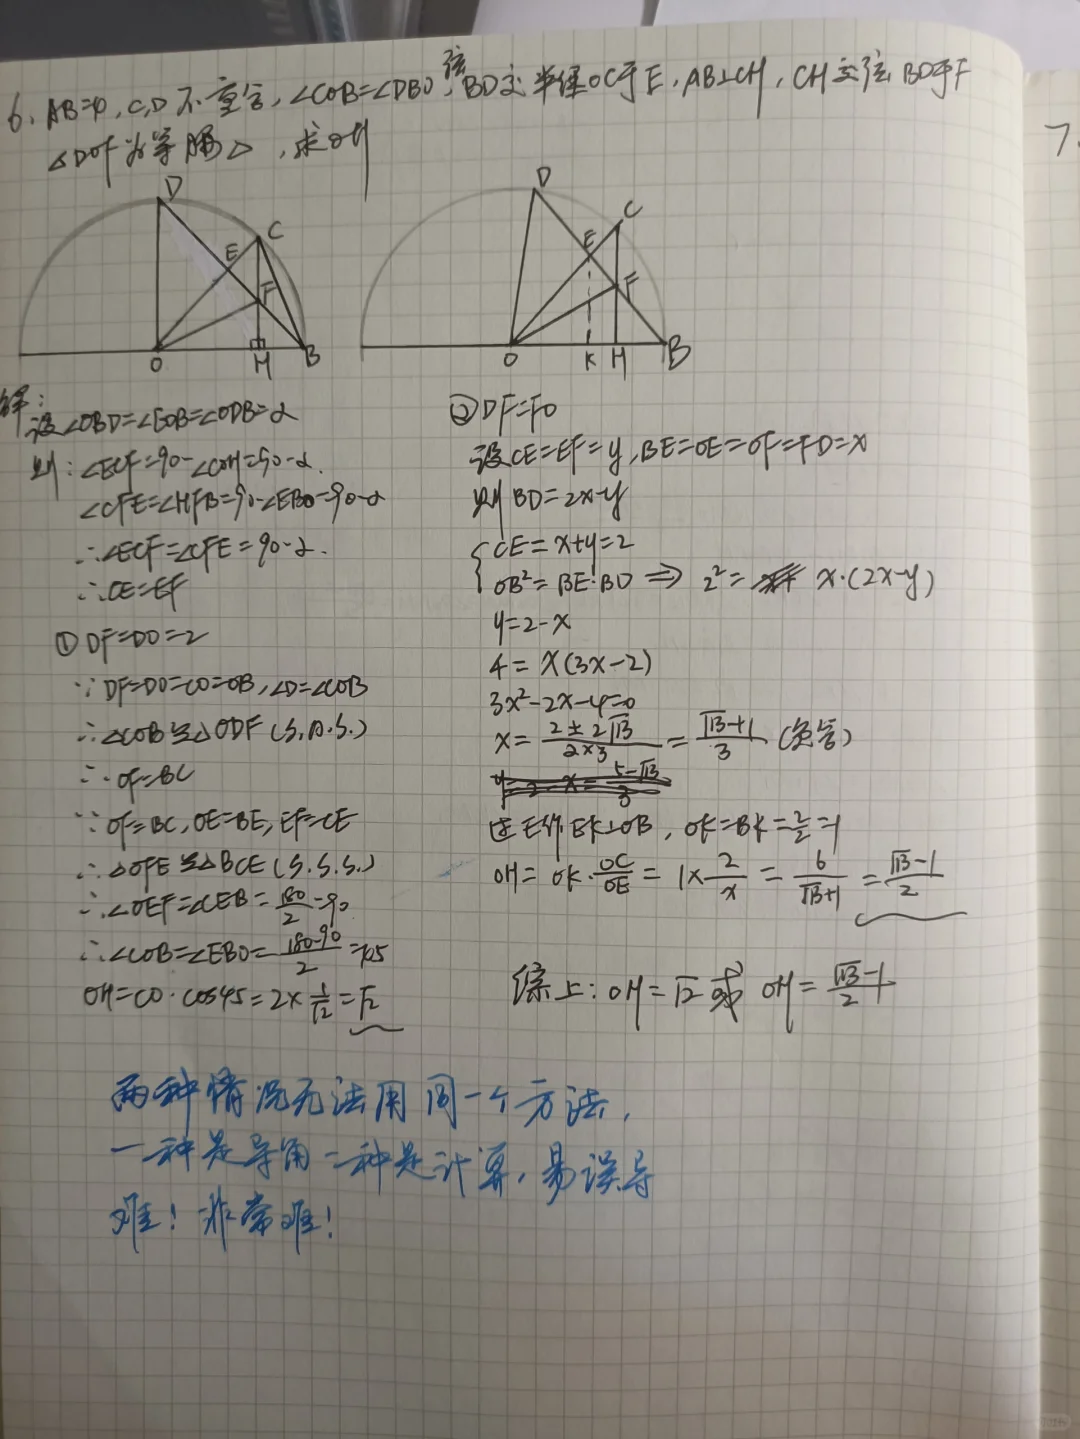 6. AB=4, C,D不重合, ∠COB=∠DBO, 弦BD交半径OC于E, AB⊥CH, CH交弦BD于F
△DOF为等腰△, 求OH
7.
D
C
E
F
O
H
B
D
C
E
F
O
K
H
B
解:
设∠OBD=∠EOB=∠ODB=α
则: ∠ECF=90-∠COH=90-α.
∠CFE=∠HFB=90-∠EBO=90-α
∴∠ECF=∠CFE=90-α.
∴CE=EF
① DF=DO=2
∵DF=DO=CO=OB, ∠D=∠COB
∴△COB≌△ODF (S.A.S.)
∴OF=BC
∵OF=BC, OE=BE, EF=CE
∴△OFE≌△BCE (S.S.S.)
∴∠OEF=∠CEB=180/2=90
∴∠COB=∠EBO=(180-90)/2=45
OH=CO·cos45=2×1/√2=√2
② DF=FO
设CE=EF=y, BE=OE=OF=FD=x
则BD=2x-y
{ CE=x+y=2
OB²=BE·BD ⇒ 2²= x·(2x-y)
y=2-x
4=x(3x-2)
3x²-2x-4=0
x=(2±2√13)/(2×3)=(√13+1)/3 (负舍)
y=2-x=(5-√13)/3
过E作EK⊥OB, OK=BK=2/2=1
OH=OK·OC/OE=1×2/x=6/(√13+1)=(√13-1)/2
综上: OH=√2 或 OH=(√13-1)/2
两种情况无法用同一个方法,
一种是导角一种是计算, 易误导
难! 非常难!